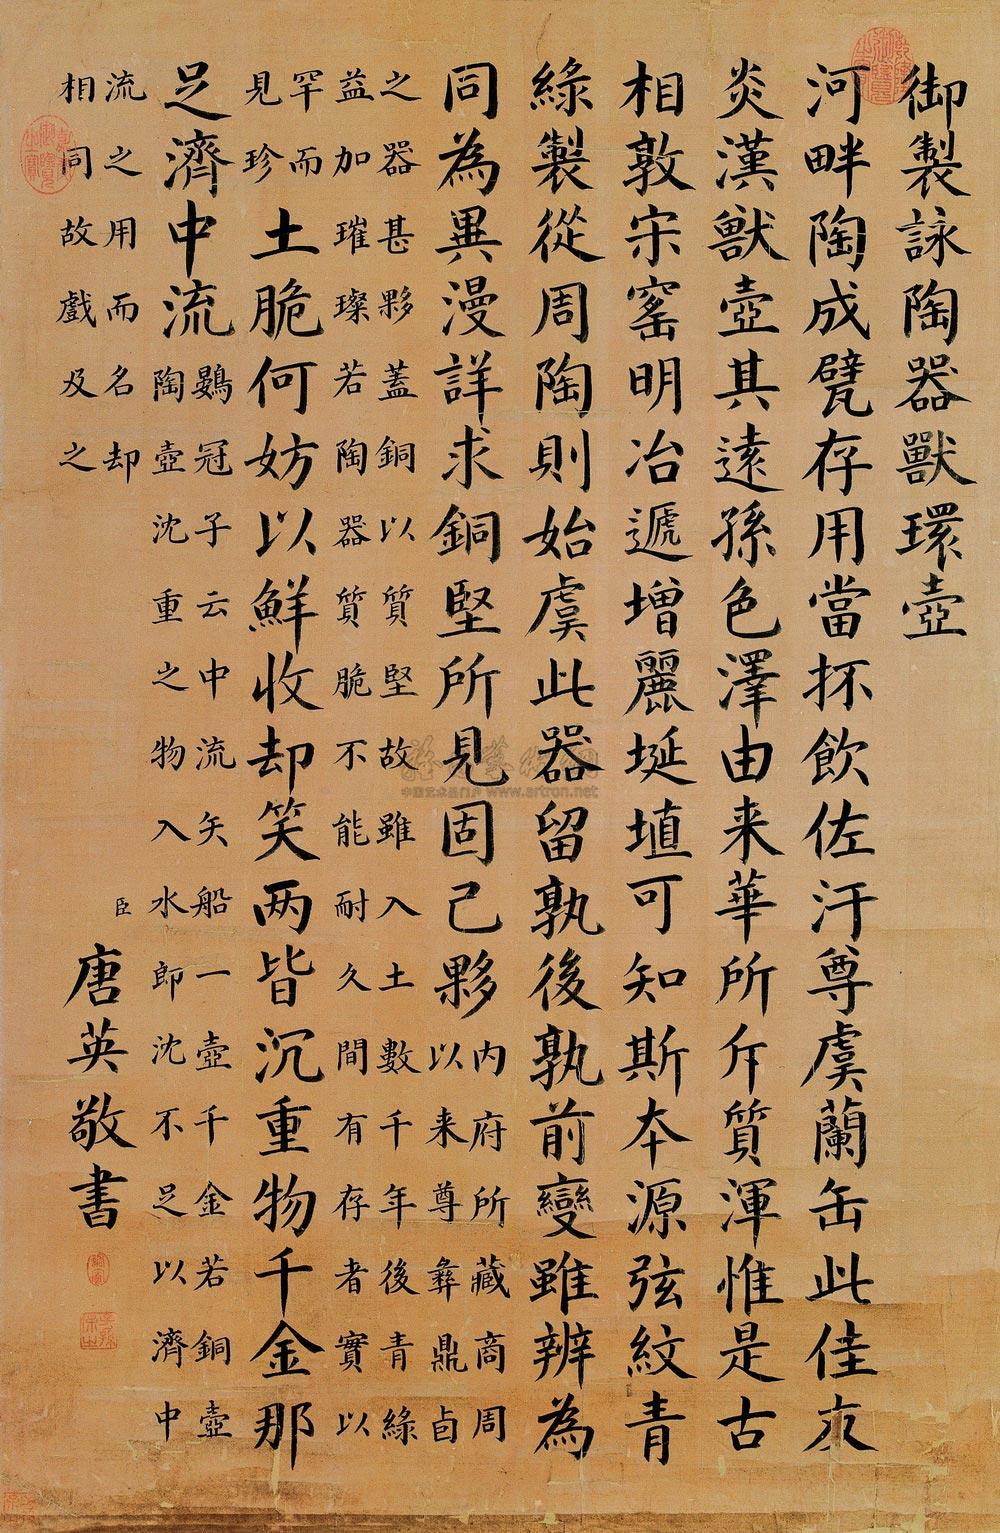 御製詠陶器獸環壺
河畔陶成甓存用當抔飲佐汙尊虞蘭缶此佳友
炎漢獸壺其遠孫色澤由来華所斥質渾惟是古
相敦宋窰明冶遞增麗埏埴可知斯本源弦紋青
綠製從周陶則始虞此器留孰後孰前變雖辨為
同為異漫詳求銅堅所見固已夥
内府所藏商周
以来尊彝鼎卣
之器甚夥蓋銅以質堅故雖入土數千年後青綠
益加璀璨若陶器質脆不能耐久間有存者實以
罕而
見珍
土脆何妨以鮮收却笑两皆沉重物千金那
足濟中流
鶡冠子云中流失船一壺千金若銅壺
陶壺沈重之物入水即沈不足以濟中
流之用而名却
相同故戲及之
臣唐英敬書
www.artron.net